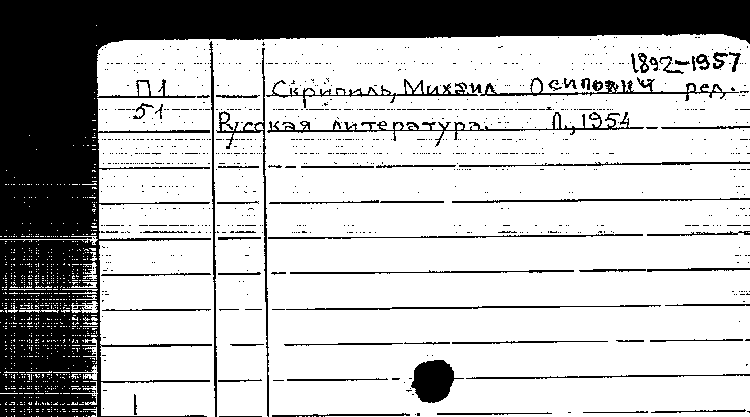 1892-1957
П1 Скрипиль, Михаил Осипович ред.
51 Русская литература. Л., 1954